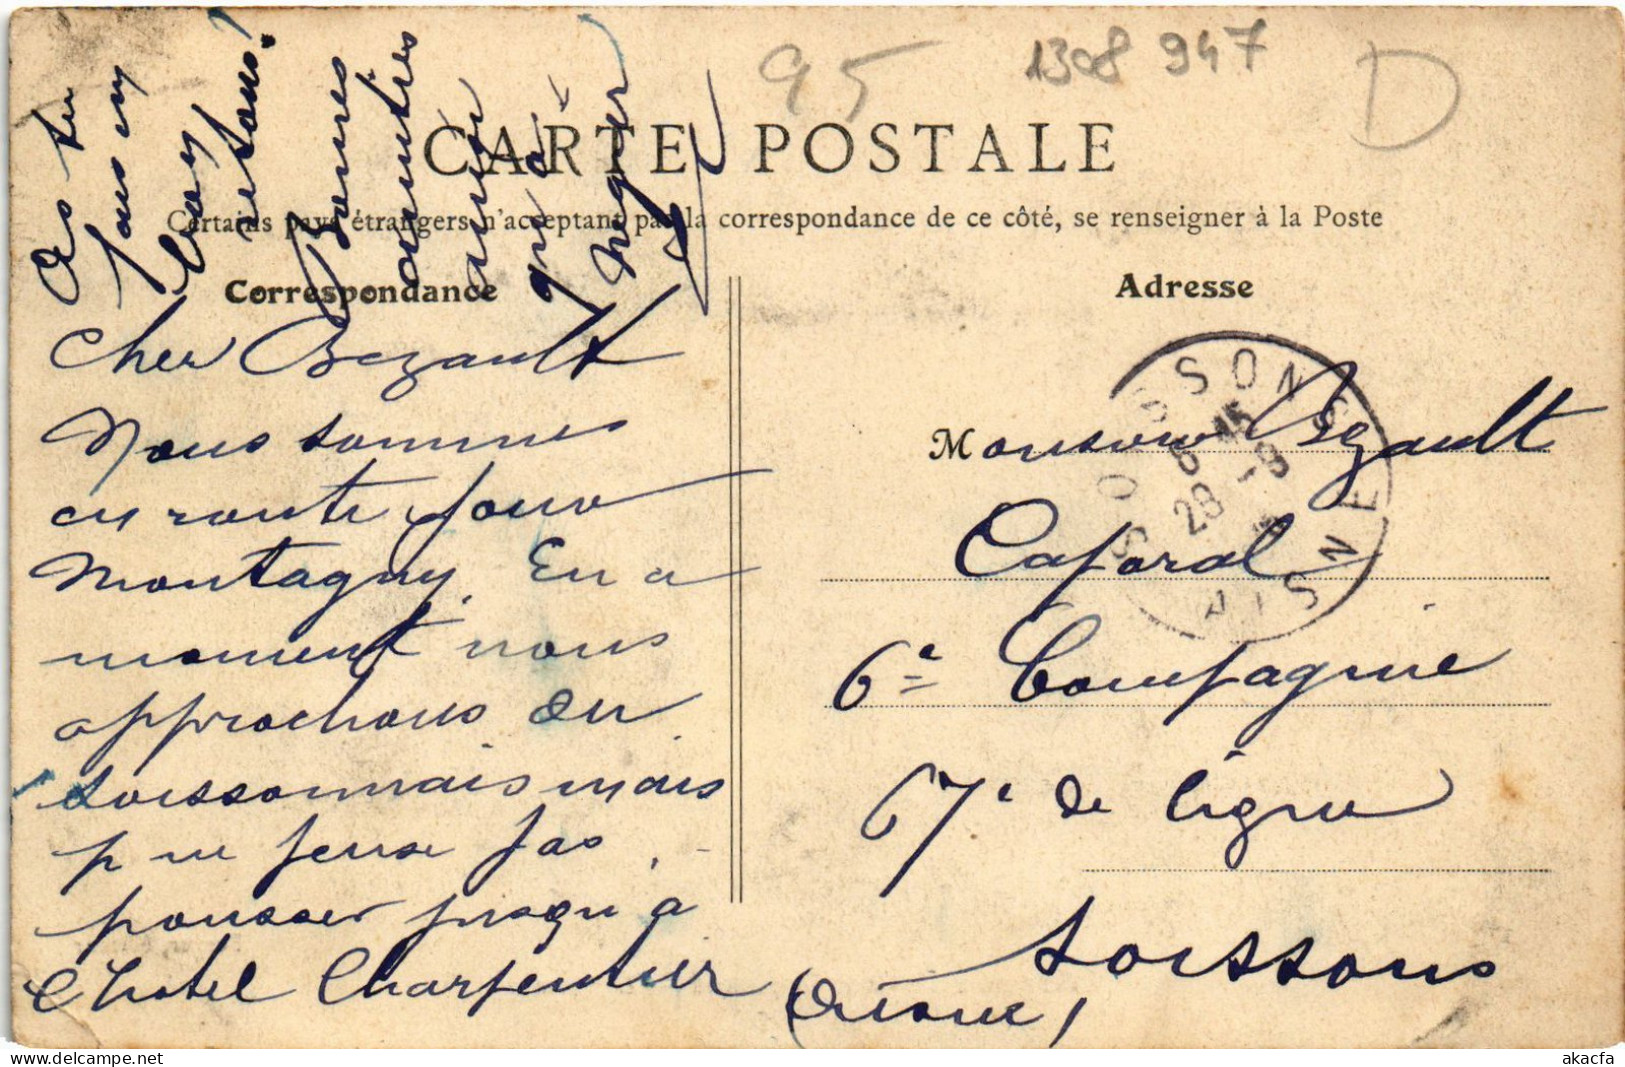 95
1308 947
D
CARTE POSTALE
Certains pays étrangers n'acceptant pas la correspondance de ce côté, se renseigner à la Poste
Correspondance
Adresse
Cher Bezault
Nous sommes
en route pour
Montagny. En a
moment nous
approchons du
Soissonnais mais
je ne pense pas
pousser jusqu'à
l'hotel Charpentier
As tu
Bonnes
amitiés
Monsieur Bezault
Caporal
6e Compagnie
67e de ligne
Soissons
(Aisne)
SOISSONS
AISNE
28 -8
akacfa
delcampe.net